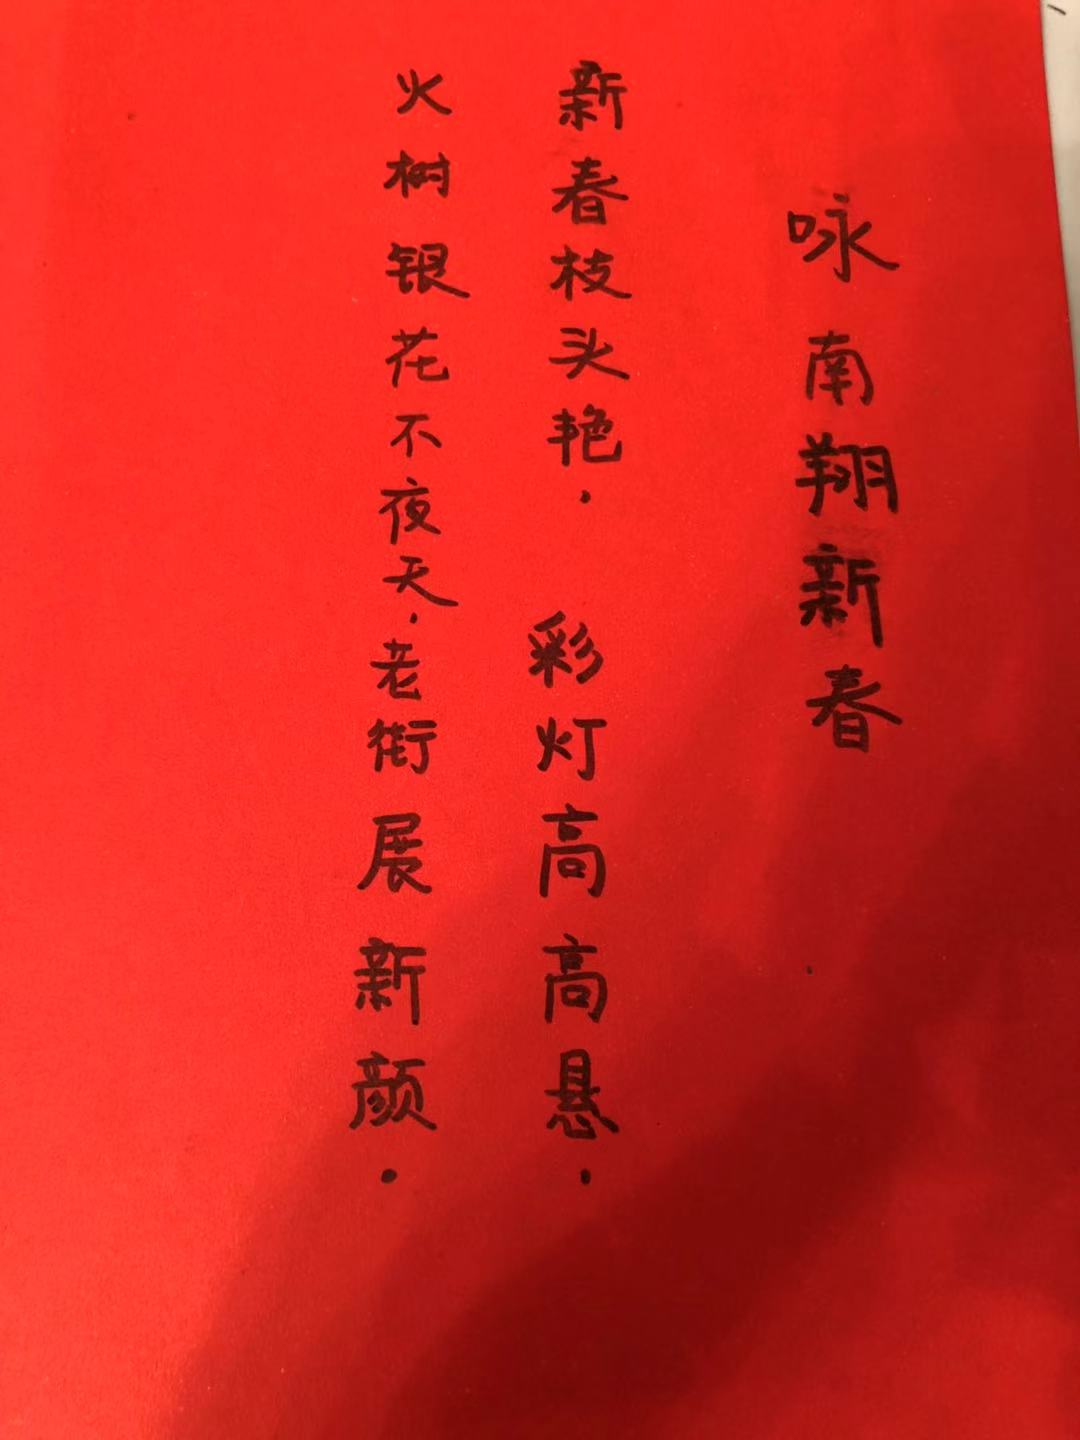 咏南翔新春
新春枝头艳，彩灯高高悬，
火树银花不夜天，老街展新颜．